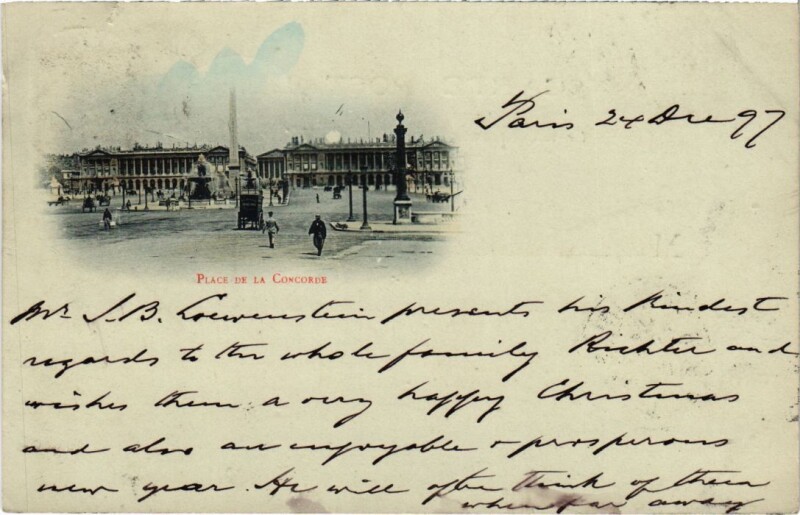 Paris 24 Dre 97
PLACE DE LA CONCORDE
Mr. S. B. Loewenstein presents his Kindest
regards to the whole family Richter and
wishes them a very happy Christmas
and also an enjoyable & prosperous
new year. He will often think of them
when far away